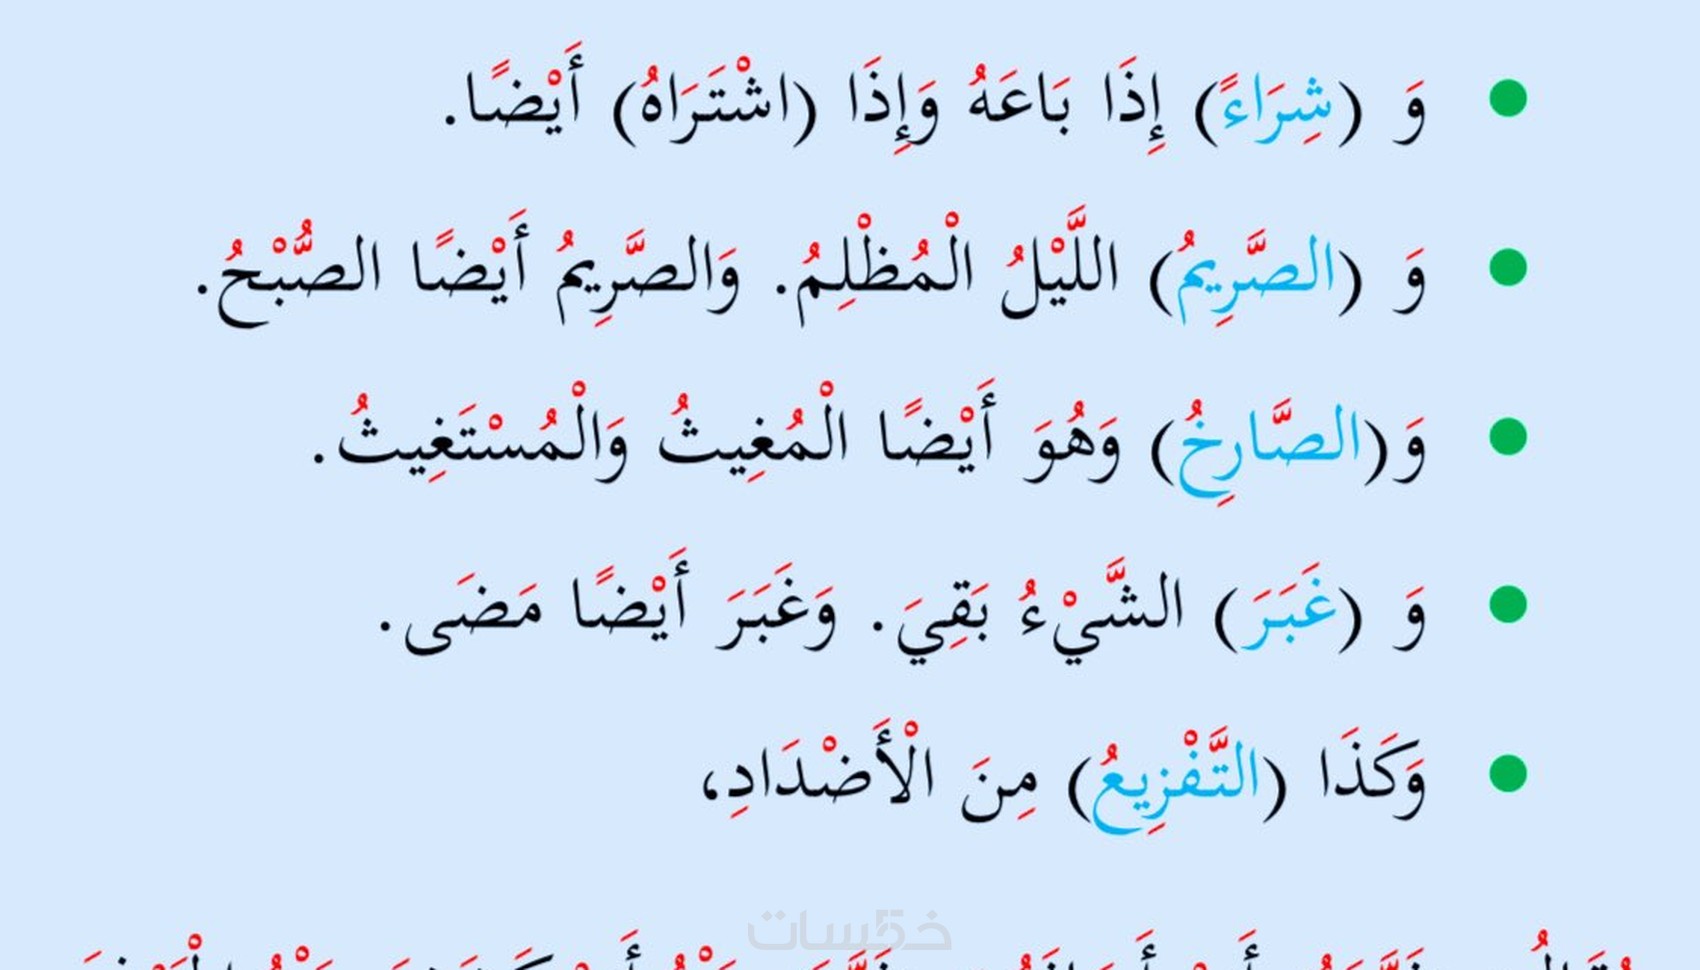 وَ (شِرَاءً) إِذَا بَاعَهُ وَإِذَا (اشْتَرَاهُ) أَيْضًا.
وَ (الصَّرِيمُ) اللَّيْلُ الْمُظْلِمُ. وَالصَّرِيمُ أَيْضًا الصُّبْحُ.
وَ(الصَّارِخُ) وَهُوَ أَيْضًا الْمُغِيثُ وَالْمُسْتَغِيثُ.
وَ (غَبَرَ) الشَّيْءُ بَقِيَ. وَغَبَرَ أَيْضًا مَضَى.
وَكَذَا (التَّفْزِيعُ) مِنَ الْأَضْدَادِ،
خمسات